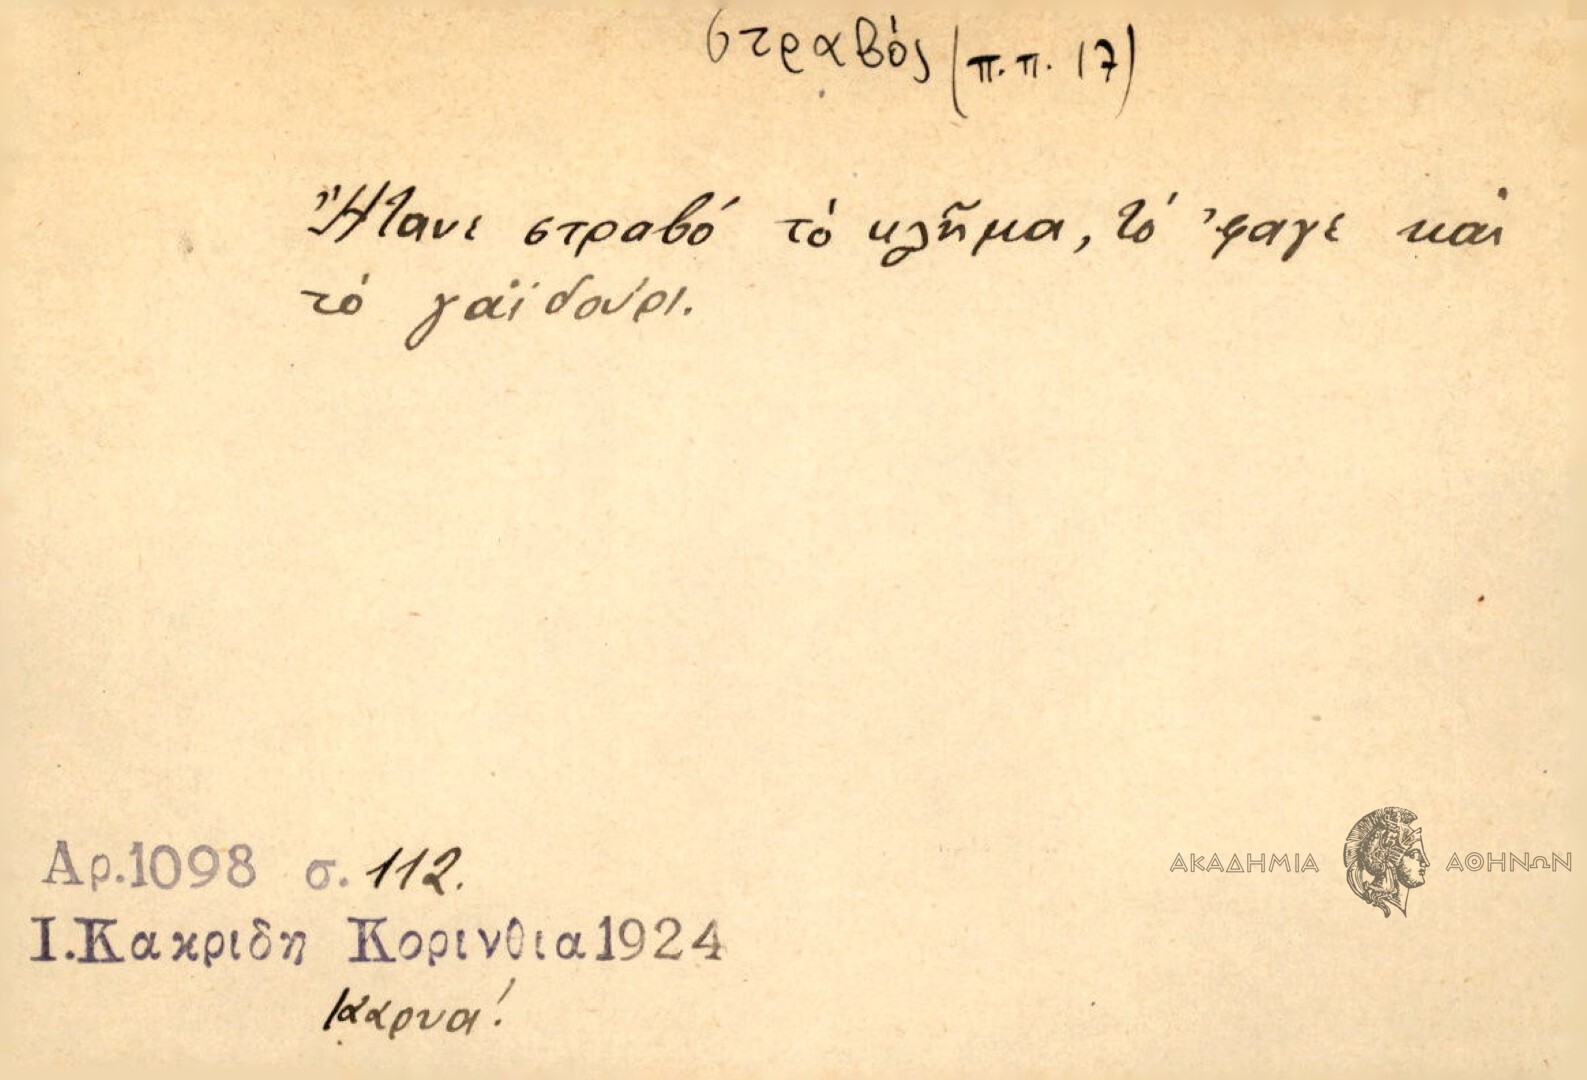 στραβός (π.π. 17)
Ἤτανε στραβό τό κλῆμα, τό 'φαγε καί
τό γαϊδούρι.
Αρ.1098 σ. 112.
Ι.Κακριδη Κορινθια1924
ΑΚΑΔΗΜΙΑ ΑΘΗΝΩΝ